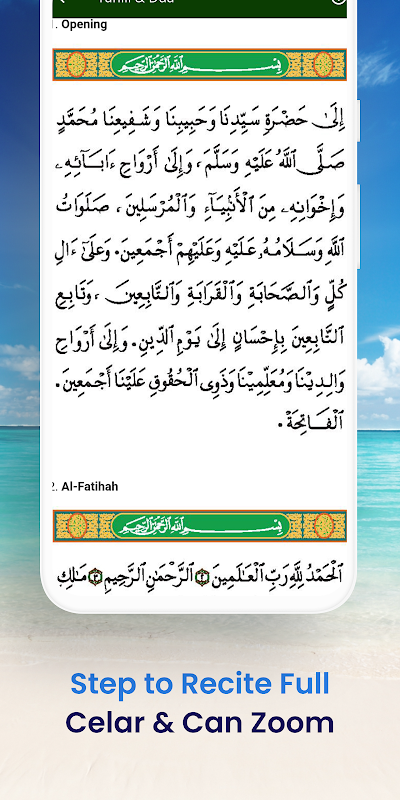 Tahlil & Dua
1. Opening
بِسْمِ اللَّهِ الرَّحْمَنِ الرَّحِيمِ
إِلَىٰ حَضْرَةِ سَيِّدِنَا وَحَبِيبِنَا وَشَفِيعِنَا مُحَمَّدٍ
صَلَّى اللَّهُ عَلَيْهِ وَسَلَّمَ، وَإِلَىٰ أَرْوَاحِ ءَابَآئِهِۦ
وَإِخْوَانِهِۦ مِنَ الْأَنْبِيَآءِ وَالْمُرْسَلِينَ، صَلَوَاتُ
اللَّهِ وَسَلَامُهُۥ عَلَيْهِ وَعَلَيْهِمْ أَجْمَعِينَ. وَعَلَىٰٓ ءَالِ
كُلٍّ وَالصَّحَابَةِ وَالْقَرَابَةِ وَالتَّابِعِينَ، وَتَابِعِ
التَّابِعِينَ بِإِحْسَانٍ إِلَىٰ يَوْمِ الدِّينِ. وَإِلَىٰ أَرْوَاحِ
وَالِدِيْنَا وَمُعَلِّمِيْنَا وَذَوِى الْحُقُوقِ عَلَيْنَا أَجْمَعِينَ.
الْفَــاتِحَةْ.
2. Al-Fatihah
بِسْمِ اللَّهِ الرَّحْمَنِ الرَّحِيمِ
الْحَمْدُ لِلَّهِ رَبِّ الْعَـٰلَمِينَ ﴿٢﴾ الرَّحْمَـٰنِ الرَّحِيمِ ﴿٣﴾ مَـٰلِكِ
Step to Recite Full
Celar & Can Zoom